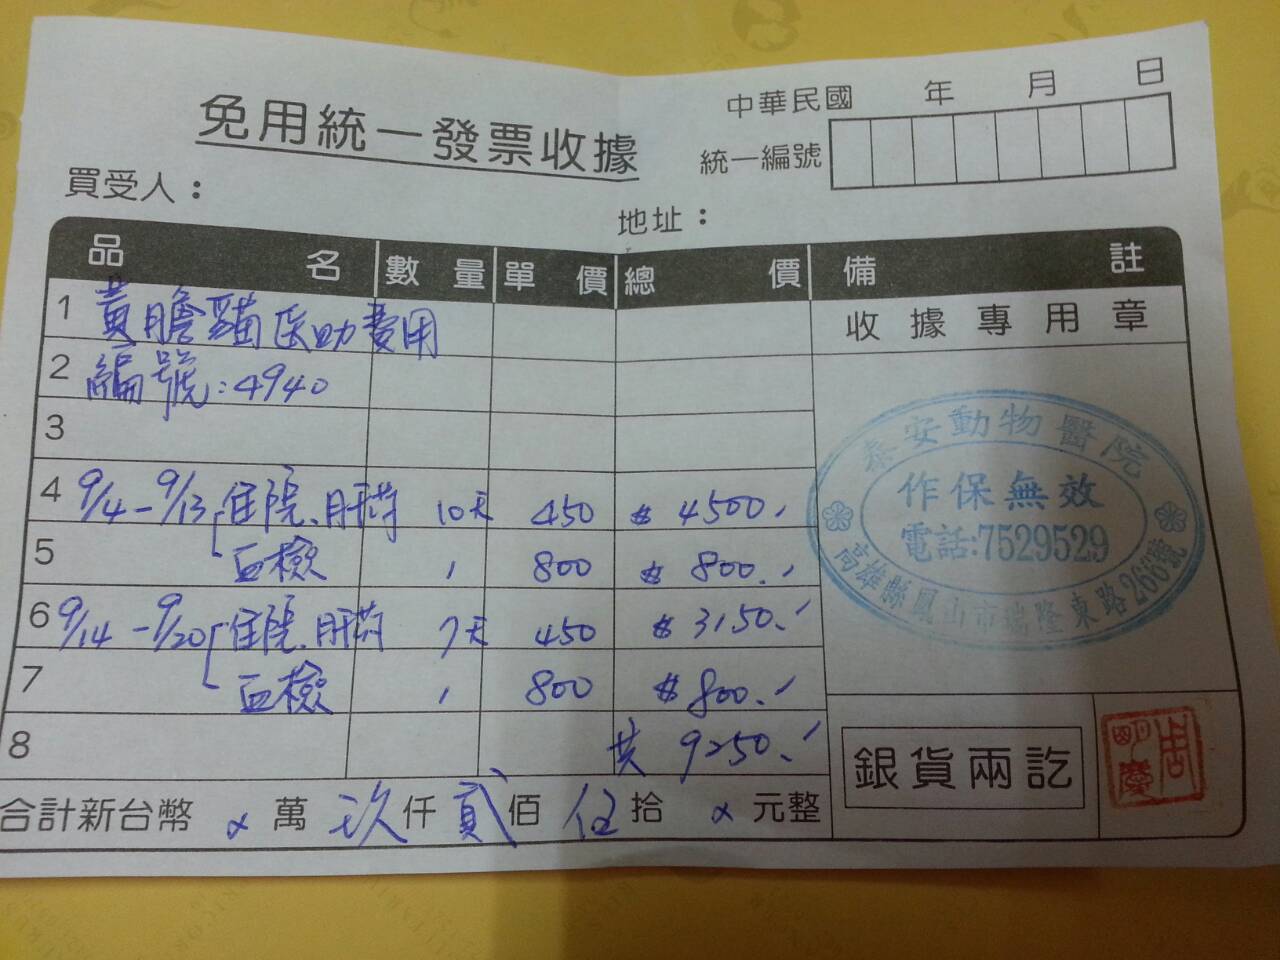 免用統一發票收據
中華民國 年 月 日
統一編號
買受人：
地址：
品名 數量 單價 總價 備註
收據專用章
1 黃膽貓医助費用
2 編號:4940
3
4 9/4-9/13 住院、肝药 10天 450 $4500.-
5 血檢 1 800 $800.-
6 9/14-9/20 住院、肝药 7天 450 $3150.-
7 血檢 1 800 $800.-
8 共 9250.-
合計新台幣 × 萬 玖 仟 貳 佰 伍 拾 × 元整
泰安動物醫院
作保無效
電話:7529529
高雄縣鳳山市瑞隆東路266號
銀貨兩訖